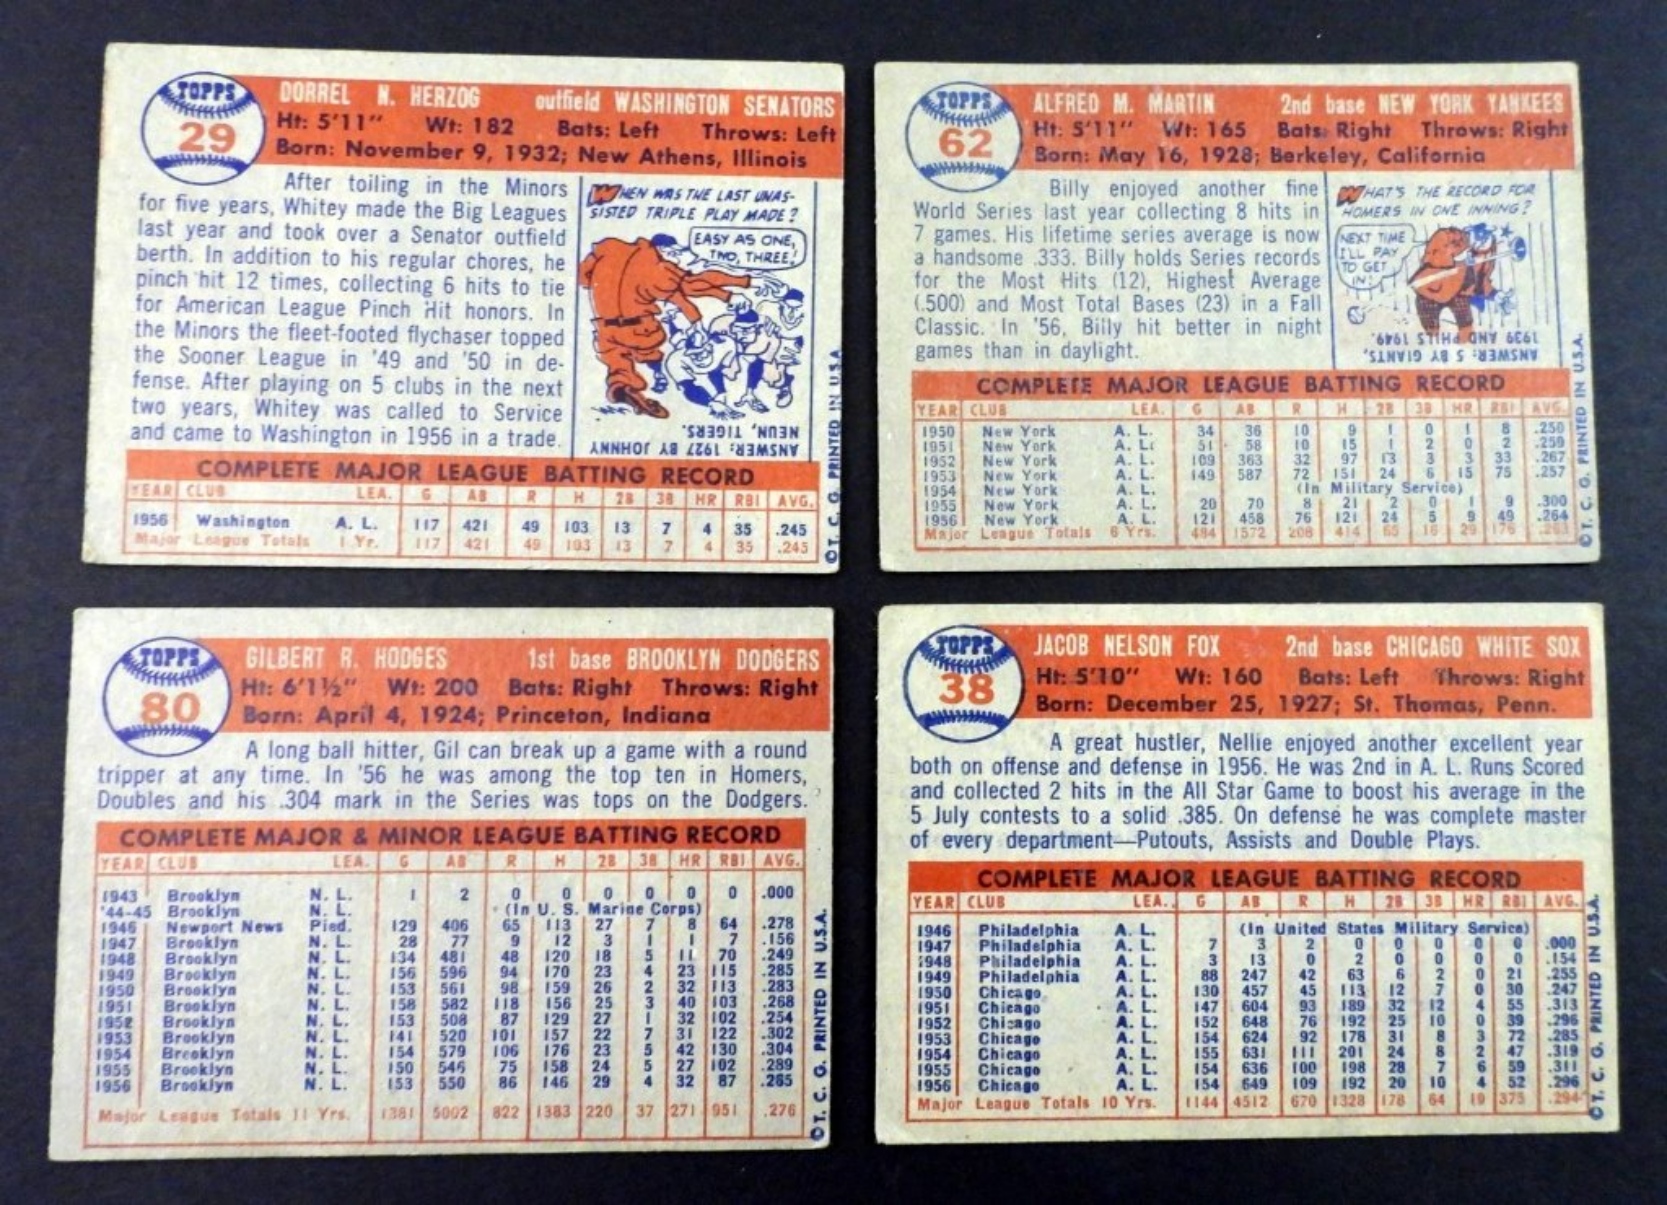 TOPPS
29
DORREL N. HERZOG outfield WASHINGTON SENATORS
Ht: 5'11" Wt: 182 Bats: Left Throws: Left
Born: November 9, 1932; New Athens, Illinois
After toiling in the Minors
for five years, Whitey made the Big Leagues
last year and took over a Senator outfield
berth. In addition to his regular chores, he
pinch hit 12 times, collecting 6 hits to tie
for American League Pinch Hit honors. In
the Minors the fleet-footed flychaser topped
the Sooner League in '49 and '50 in de-
fense. After playing on 5 clubs in the next
two years, Whitey was called to Service
and came to Washington in 1956 in a trade.
WHEN WAS THE LAST UNAS-
SISTED TRIPLE PLAY MADE?
EASY AS ONE,
TWO, THREE!
ANSWER: 1927 BY JOHNNY
NEUN, TIGERS.
COMPLETE MAJOR LEAGUE BATTING RECORD
YEAR CLUB LEA. G AB R H 2B 3B HR RBI AVG.
1956 Washington A. L. 117 421 49 103 13 7 4 35 .245
Major League Totals 1 Yr. 117 421 49 103 13 7 4 35 .245
© T. C. G. PRINTED IN U.S.A.
TOPPS
62
ALFRED M. MARTIN 2nd base NEW YORK YANKEES
Ht: 5'11" Wt: 165 Bats: Right Throws: Right
Born: May 16, 1928; Berkeley, California
Billy enjoyed another fine
World Series last year collecting 8 hits in
7 games. His lifetime series average is now
a handsome .333. Billy holds Series records
for the Most Hits (12), Highest Average
(.500) and Most Total Bases (23) in a Fall
Classic. In '56, Billy hit better in night
games than in daylight.
WHAT'S THE RECORD FOR
HOMERS IN ONE INNING?
NEXT TIME
I'LL PAY
TO GET
IN!
ANSWER: 5 BY GIANTS,
1939 AND PHILS 1949.
COMPLETE MAJOR LEAGUE BATTING RECORD
YEAR CLUB LEA. G AB R H 2B 3B HR RBI AVG.
1950 New York A. L. 34 36 10 9 1 0 1 8 .250
1951 New York A. L. 51 58 10 15 1 2 0 2 .259
1952 New York A. L. 109 363 32 97 13 3 3 33 .267
1953 New York A. L. 149 587 72 151 24 6 15 75 .257
1954 New York A. L. (In Military Service)
1955 New York A. L. 20 70 8 21 2 0 1 9 .300
1956 New York A. L. 121 458 76 121 24 5 9 49 .264
Major League Totals 6 Yrs. 484 1572 208 414 65 16 29 176 .263
© T. C. G. PRINTED IN U.S.A.
TOPPS
80
GILBERT R. HODGES 1st base BROOKLYN DODGERS
Ht: 6'1½" Wt: 200 Bats: Right Throws: Right
Born: April 4, 1924; Princeton, Indiana
A long ball hitter, Gil can break up a game with a round
tripper at any time. In '56 he was among the top ten in Homers,
Doubles and his .304 mark in the Series was tops on the Dodgers.
COMPLETE MAJOR & MINOR LEAGUE BATTING RECORD
YEAR CLUB LEA. G AB R H 2B 3B HR RBI AVG.
1943 Brooklyn N. L. 1 2 0 0 0 0 0 0 .000
'44-45 Brooklyn N. L. (In U. S. Marine Corps)
1946 Newport News Pied. 129 406 65 113 27 7 8 64 .278
1947 Brooklyn N. L. 28 77 9 12 3 1 1 7 .156
1948 Brooklyn N. L. 134 481 48 120 18 5 11 70 .249
1949 Brooklyn N. L. 156 596 94 170 23 4 23 115 .285
1950 Brooklyn N. L. 153 561 98 159 26 2 32 113 .283
1951 Brooklyn N. L. 158 582 118 156 25 3 40 103 .268
1952 Brooklyn N. L. 153 508 87 129 27 1 32 102 .254
1953 Brooklyn N. L. 141 520 101 157 22 7 31 122 .302
1954 Brooklyn N. L. 154 579 106 176 23 5 42 130 .304
1955 Brooklyn N. L. 150 546 75 158 24 5 27 102 .289
1956 Brooklyn N. L. 153 550 86 146 29 4 32 87 .265
Major League Totals 11 Yrs. 1381 5002 822 1383 220 37 271 951 .276
© T. C. G. PRINTED IN U.S.A.
TOPPS
38
JACOB NELSON FOX 2nd base CHICAGO WHITE SOX
Ht: 5'10" Wt: 160 Bats: Left Throws: Right
Born: December 25, 1927; St. Thomas, Penn.
A great hustler, Nellie enjoyed another excellent year
both on offense and defense in 1956. He was 2nd in A. L. Runs Scored
and collected 2 hits in the All Star Game to boost his average in the
5 July contests to a solid .385. On defense he was complete master
of every department—Putouts, Assists and Double Plays.
COMPLETE MAJOR LEAGUE BATTING RECORD
YEAR CLUB LEA. G AB R H 2B 3B HR RBI AVG.
1946 Philadelphia A. L. (In United States Military Service)
1947 Philadelphia A. L. 7 3 2 0 0 0 0 0 .000
1948 Philadelphia A. L. 3 13 0 2 0 0 0 0 .154
1949 Philadelphia A. L. 88 247 42 63 6 2 0 21 .255
1950 Chicago A. L. 130 457 45 113 12 7 0 30 .247
1951 Chicago A. L. 147 604 93 189 32 12 4 55 .313
1952 Chicago A. L. 152 648 76 192 25 10 0 39 .296
1953 Chicago A. L. 154 624 92 178 31 8 3 72 .285
1954 Chicago A. L. 155 631 111 201 24 8 2 47 .319
1955 Chicago A. L. 154 636 100 198 28 7 6 59 .311
1956 Chicago A. L. 154 649 109 192 20 10 4 52 .296
Major League Totals 10 Yrs. 1144 4512 670 1328 178 64 19 375 .294
© T. C. G. PRINTED IN U.S.A.